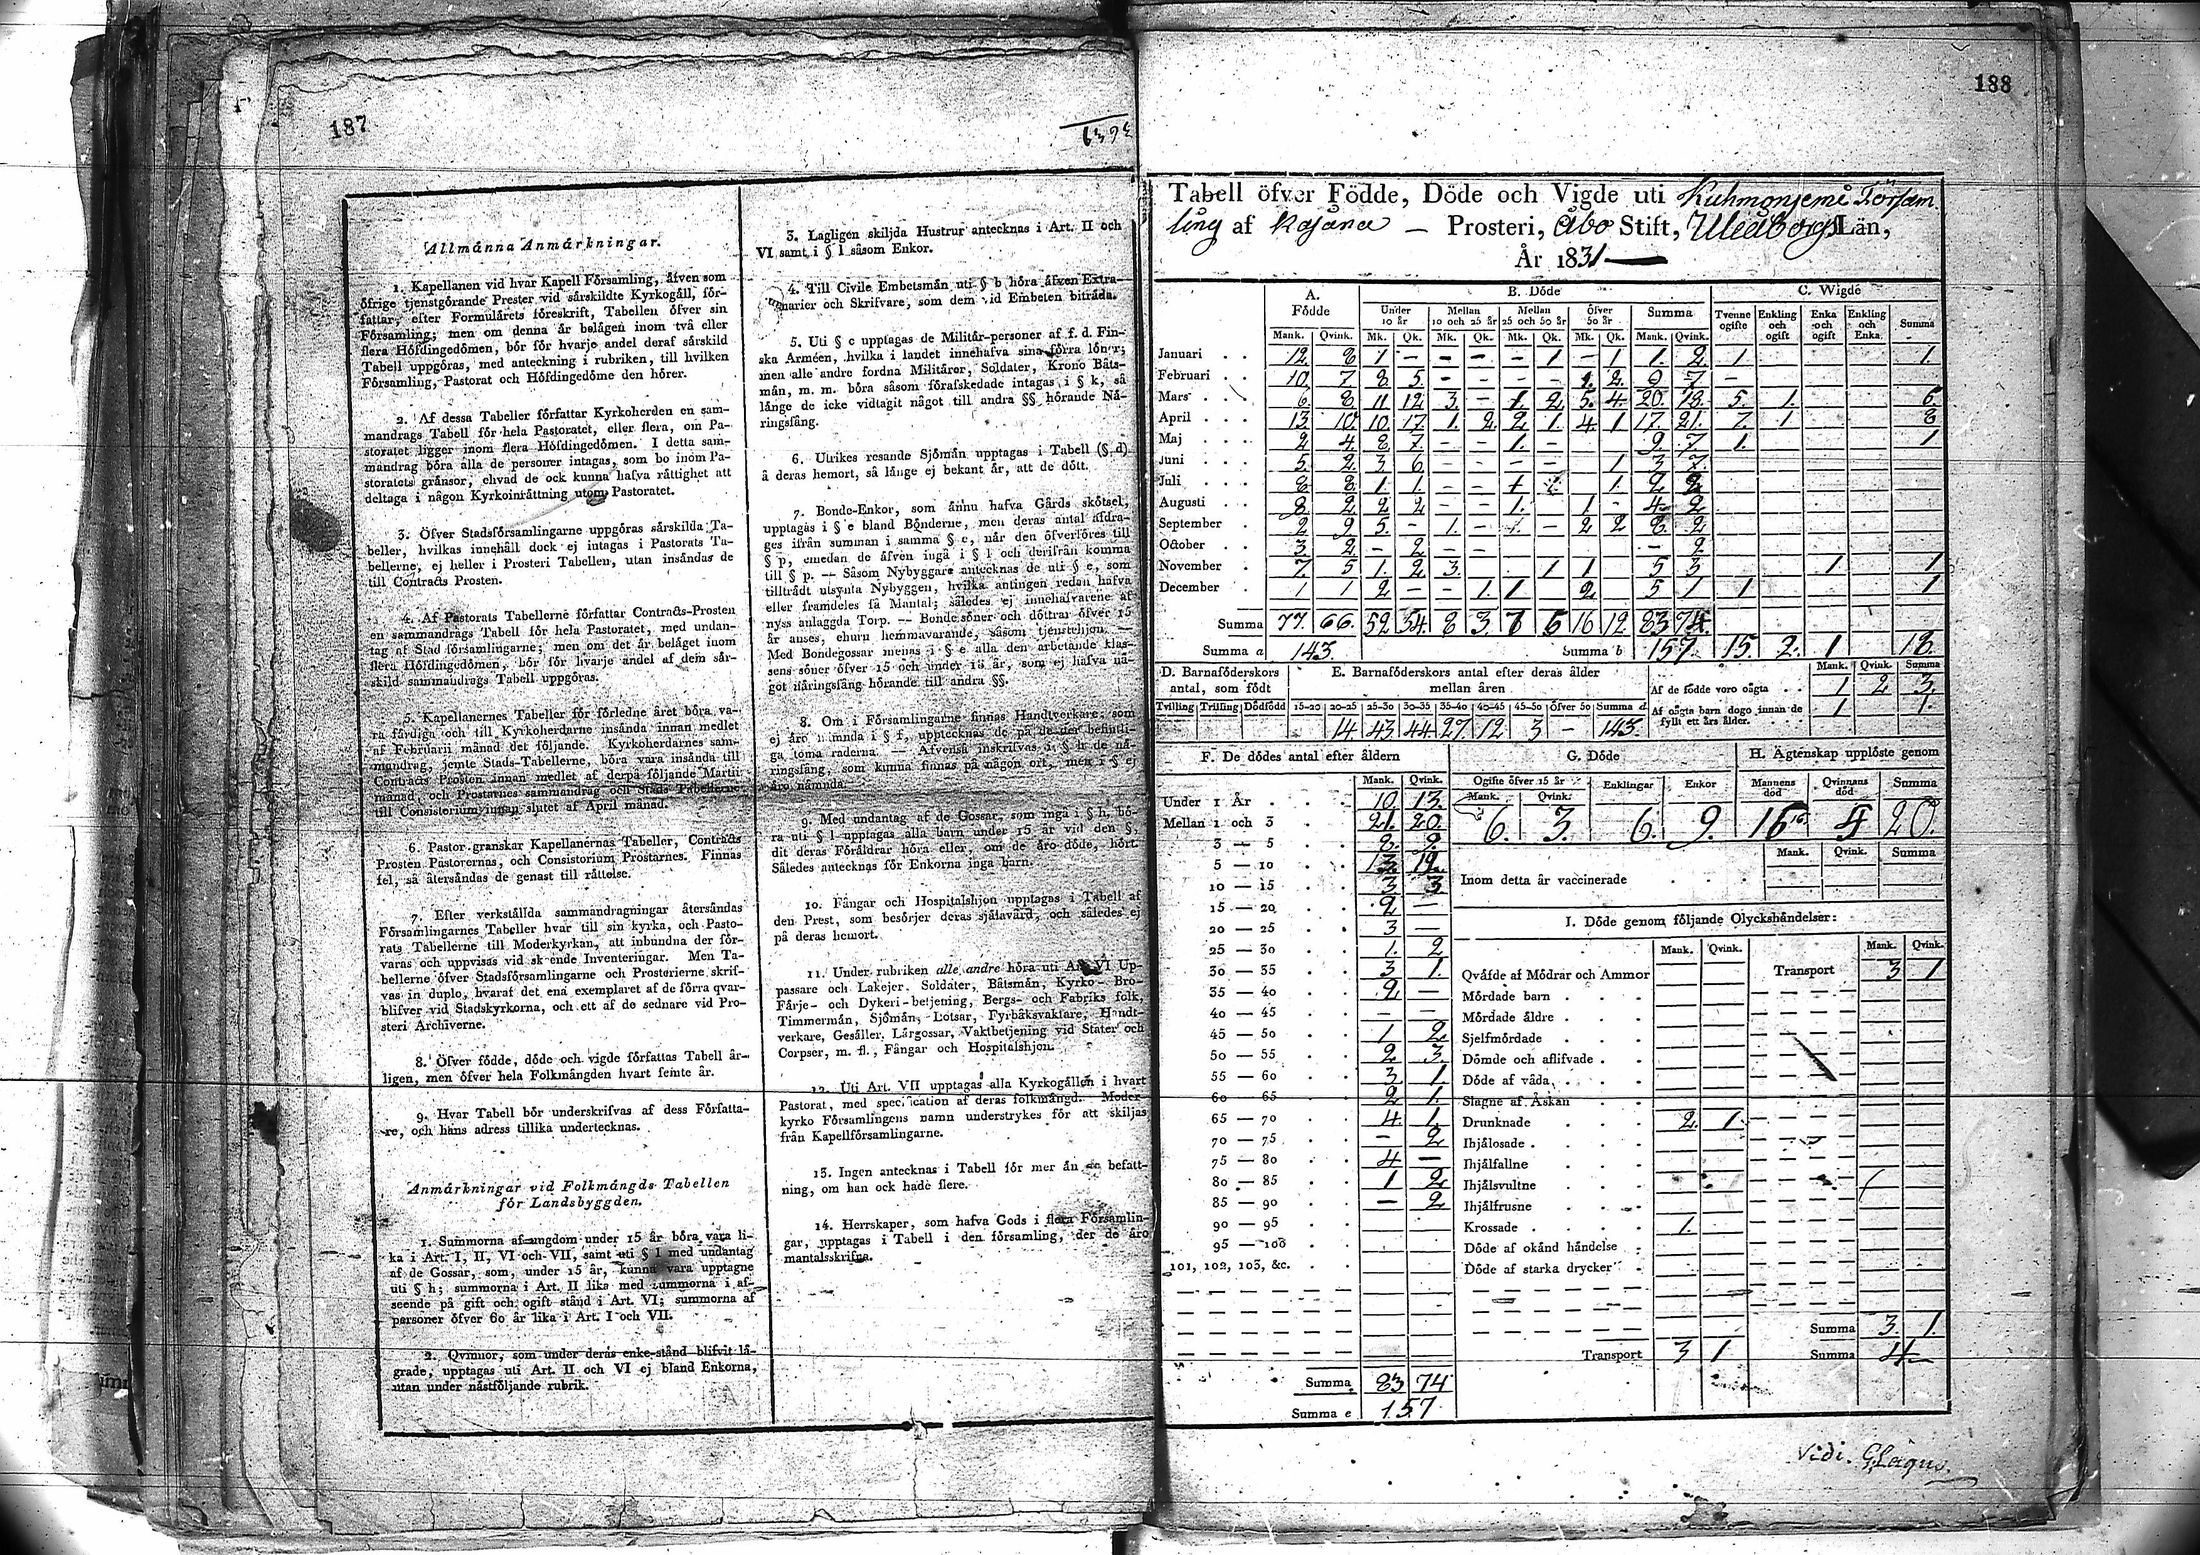 187
6393
Allmånna Anmårkningar.
1. Kapellanen vid hvar Kapell Fórsamling, åfven som
ófrige tjenstgórande Prester vid sårskildte Kyrkogåll, fór-
fattar, efter Formulårets fóreskrift, Tabellen ófver sin
Fórsamling; men om denna år belågen inom två eller
flera Hófdingedómen, bór fór hvarje andel deraf sårskild
Tabell uppgóras, med anteckning i rubriken, till hvilken
Fórsamling, Pastorat och Hófdingedóme den hórer.
2. Af dessa Tabeller fórfattar Kyrkoherden en sam-
mandrags Tabell fór hela Pastoratet, eller flera, om Pa-
storatet ligger inom flera Hófdingedómen. I detta sam-
mandrag bóra alla de personer intagas, som bo inom Pa-
storatets grånsor, ehvad de ock kunna hafva råttighet att
deltaga i någon Kyrkoinråttning utom Pastoratet.
3. Ófver Stadsfórsamlingarne uppgóras sårskilda Ta-
beller, hvilkas innehåll dock ej intagas i Pastorats Ta-
bellerne, ej heller i Prosteri Tabellen, utan insåndas de
till Contracts Prosten.
4. Af Pastorats Tabellerne fórfattar Contracts-Prosten
en sammandrags Tabell fór hela Pastoratet, med undan-
tag af Stad fórsamlingarne; men om det år belåget inom
flera Hófdingedómen, bór fór hvarje andel af dem sår-
skild sammandrags Tabell uppgóras.
5. Kapellanernes Tabeller fór fórledne året bóra va-
ra fårdiga och till Kyrkoherdarne insånda innan medlet
af Februarii månad det fóljande. Kyrkoherdarnes sam-
mandrag, jemte Stads-Tabellerne, bóra vara insånda till
Contracts Prosten innan medlet af derpå fóljande Martii
månad, och Prostarnes sammandrag och Stads Tabellerne
till Consistorium innan slutet af April månad.
6. Pastor granskar Kapellanernas Tabeller, Contracts
Prosten Pastorernas, och Consistorium Prostarnes. Finnas
fel, så återsåndas de genast till råttelse.
7. Efter verkstållda sammandragningar återsåndas
Fórsamlingarnes Tabeller hvar till sin kyrka, och Pasto-
rats Tabellerne till Moderkyrkan, att inbundna der fór-
varas och uppvisas vid skeende Inventeringar. Men Ta-
bellerne ófver Stadsfórsamlingarne och Prosterierne skrif-
vas in duplo, hvaraf det ena exemplaret af de fórra qvar-
blifver vid Stadskyrkorna, och ett af de sednare vid Pro-
steri Archiverne.
8. Ófver fódde, dóde och vigde fórfattas Tabell år-
ligen, men ófver hela Folkmångden hvart femte år.
9. Hvar Tabell bór underskrifvas af dess Fórfatta-
re, och hans adress tillika undertecknas.
Anmårkningar vid Folkmångds Tabellen
fór Landsbyggden.
1. Summorna af ungdom under 15 år bóra vara li-
ka i Art. I, II, VI och VII, samt uti § l med undantag
af de Gossar, som, under 15 år, kunna vara upptagne
uti § h; summorna i Art. II lika med summorna i af-
seende på gift och ogift stånd i Art. VI; summorna af
personer ófver 60 år lika i Art. I och VII.
2. Qvinnor, som under deras enke-stånd blifvit lå-
grade, upptagas uti Art. II och VI ej bland Enkorna,
utan under nåstfóljande rubrik.
3. Lagligen skiljda Hustrur antecknas i Art. II och
VI samt i § l såsom Enkor.
4. Till Civile Embetsmån uti § b hóra åfven Extra-
marier och Skrifvare, som dem vid Embeten bitråda.
5. Uti § c upptagas de Militår-personer af f. d. Fin-
ska Arméen, hvilka i landet innehafva sina fórra lóner;
men alle andre fordna Militårer, Soldater, Krono Båts-
mån, m. m. bóra såsom fórafskedade intagas i § k, så
långe de icke vidtagit något till andra §§ hórande Nå-
ringsfång.
6. Utrikes resande Sjómån upptagas i Tabell (§ d)
å deras hemort, så långe ej bekant år, att de dótt.
7. Bonde-Enkor, som ånnu hafva Gårds skótsel,
upptagas i § e bland Bónderne, men deras antal afdra-
ges ifrån summan i samma § e, når den ófverfóres till
§ p, emedan de åfven ingå i § l och derifrån komma
till § p. — Såsom Nybyggare antecknas de uti § e, som
tilltrådt utsynta Nybyggen, hvilka antingen redan hafva
eller framdeles få Mantal; således ej innehafvarene af
nyss anlaggda Torp. — Bondesóner och dóttrar ófver 15
år anses, ehuru hemmavarande, såsom tjenstehjon. —
Med Bondegossar menas i § e alla den arbetande klas-
sens sóner ófver 15 och under 18 år, som ej hafva nå-
got nåringsfång hórande till andra §§.
8. Om i Fórsamlingarne finnas Handtverkare, som
ej åro nåmnda i § f, upptecknas de på de der befintli-
ga toma raderna. — Åfvenså inskrifvas i § h de nå-
ringsfång, som kunna finnas på någon ort, men i § ej
åro nåmnda.
9. Med undantag af de Gossar, som ingå i § h, bó-
ra uti § l upptagas alla barn under 15 år vid den §,
dit deras Fóråldrar hóra eller, om de åro dóde, hórt.
Således antecknas fór Enkorna inga barn.
10. Fångar och Hospitalshjon upptagas i Tabell af
den Prest, som besórjer deras sjålavård, och således ej
på deras hemort.
11. Under rubriken alle andre hóra uti Art. VI Up-
passare och Lakejer, Soldater, Båtsmån, Kyrko- Bro-
Fårje- och Dykeri-betjening, Bergs- och Fabriks folk,
Timmermån, Sjómån, Lotsar, Fyrbåksvaktare, Handt-
verkare, Gesåller, Lårgossar, Vaktbetjening vid Stater och
Corpser, m. fl., Fångar och Hospitalshjon.
12. Uti Art. VII upptagas alla Kyrkogållen i hvart
Pastorat, med specification af deras folkmångd. Moder-
kyrko Fórsamlingens namn understrykes fór att skiljas
från Kapellfórsamlingarne.
13. Ingen antecknas i Tabell fór mer ån en befatt-
ning, om han ock hade flere.
14. Herrskaper, som hafva Gods i flera Fórsamlin-
gar, upptagas i Tabell i den fórsamling, der de åro
mantalsskrifna.
188
Tabell öfver Födde, Döde och Vigde uti Kuhmoniemi Församl
ling af Kajana — Prosteri, Åbo Stift, Uleåborgs Län,
År 1831 —
A. Fódde B. Dóde C. Wigde
Under 10 år Mellan 10 och 25 år Mellan 25 och 50 år Ófver 50 år Summa Tvenne ogifte Enkling och ogift Enka och ogift Enkling och Enka Summa
Mank. Qvink. Mk. Qk. Mk. Qk. Mk. Qk. Mk. Qk. Mank. Qvink.
Januari 12. 8 1 — — — — 1 — 1 1. 2. 1 1.
Februari 10. 7 8 5. — — — — 1. 2. 9 7 —
Mars 6. 8. 11 12 3. — 1. 2. 5. 4. 20. 18. 5. 1. 6.
April 13. 10. 10. 17. 1. 2. 2. 1. 4. 1 17. 21. 7. 1 8
Maj 2 4. 8 7. — — 1. — 9. 7 1. 1
Juni 5. 2. 3 6 — — — — 1 3 7.
Juli 8 8. 1. 1. — — 1 1 2 2
Augusti 8. 2 2 2 — — 1. — 1 — 4 2
September 2 9. 5. — 1. — 1. — 2 2 8. 2
October 3. 2. — 2 — — — 2
November 7. 5 1. 2. 3. 1 1 5 3 1 1
December 1 1 2 — — 1. 1 2. 5 1 1 1
Summa 77. 66. 52 54. 8 3. 7 5 16 12. 83 74.
Summa a 143. Summa b 157. 15. 2. 1 18.
D. Barnafóderskors antal, som fódt
Tvilling Trilling Dódfódd
E. Barnafóderskors antal efter deras ålder mellan åren
15—20 20—25 25—30 30—35 35—40 40—45 45—50 Ófver 50 Summa d
14 43. 44. 27. 12. 3 — 143.
Mank. Qvink. Summa
Af de fódde voro oågta . . 1 2 3.
Af oågta barn dogo innan de fyllt ett års ålder. 1 1.
F. De dódes antal efter åldern
Mank. Qvink.
Under 1 År . . . 10. 13.
Mellan 1 och 3 21. 20.
3 — 5 8. 9.
5 — 10 13. 12.
10 — 15 3 3
15 — 20 2 —
20 — 25 3 —
25 — 30 1. 2
30 — 35 3 1.
35 — 40 2 —
40 — 45 — —
45 — 50 1 2.
50 — 55 2 3.
55 — 60 3 1
60 — 65 2 1
65 — 70 4. 1.
70 — 75 — 2
75 — 80 4 —
80 — 85 1 2
85 — 90 — 2
90 — 95
95 — 100
101, 102, 103, &c.
Summa 83 74
Summa e 157
G. Dóde
Ogifte ófver 15 år Enklingar Enkor
Mank. Qvink.
6. 3. 6. 9.
H. Ågtenskap upplóste genom
Mannens dód Qvinnans dód Summa
16 16 4 20.
Mank. Qvink. Summa
Inom detta år vaccinerade
I. Dóde genom fóljande Olyckshåndelser:
Mank. Qvink. Mank. Qvink.
Qvåfde af Módrar och Ammor Transport 3 1
Mórdade barn
Mórdade åldre
Sjelfmórdade
Dómde och aflifvade
Dóde af våda
Slagne af Åskan
Drunknade 2. 1.
Ihjålosade
Ihjålfallne
Ihjålsvultne
Ihjålfrusne
Krossade 1.
Dóde af okånd håndelse
Dóde af starka drycker
Summa 3. 1.
Transport 3 1 Summa 4
Vidi. G Lagus.